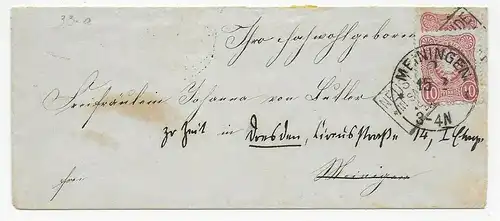 33 a
Ihro Hochwohlgeboren
MEININGEN
10
3-4N
Freifräulein Johanna von Butler
zr Zeit in Dresden, Circusstraße 14, I Etage
frei
Meiningen